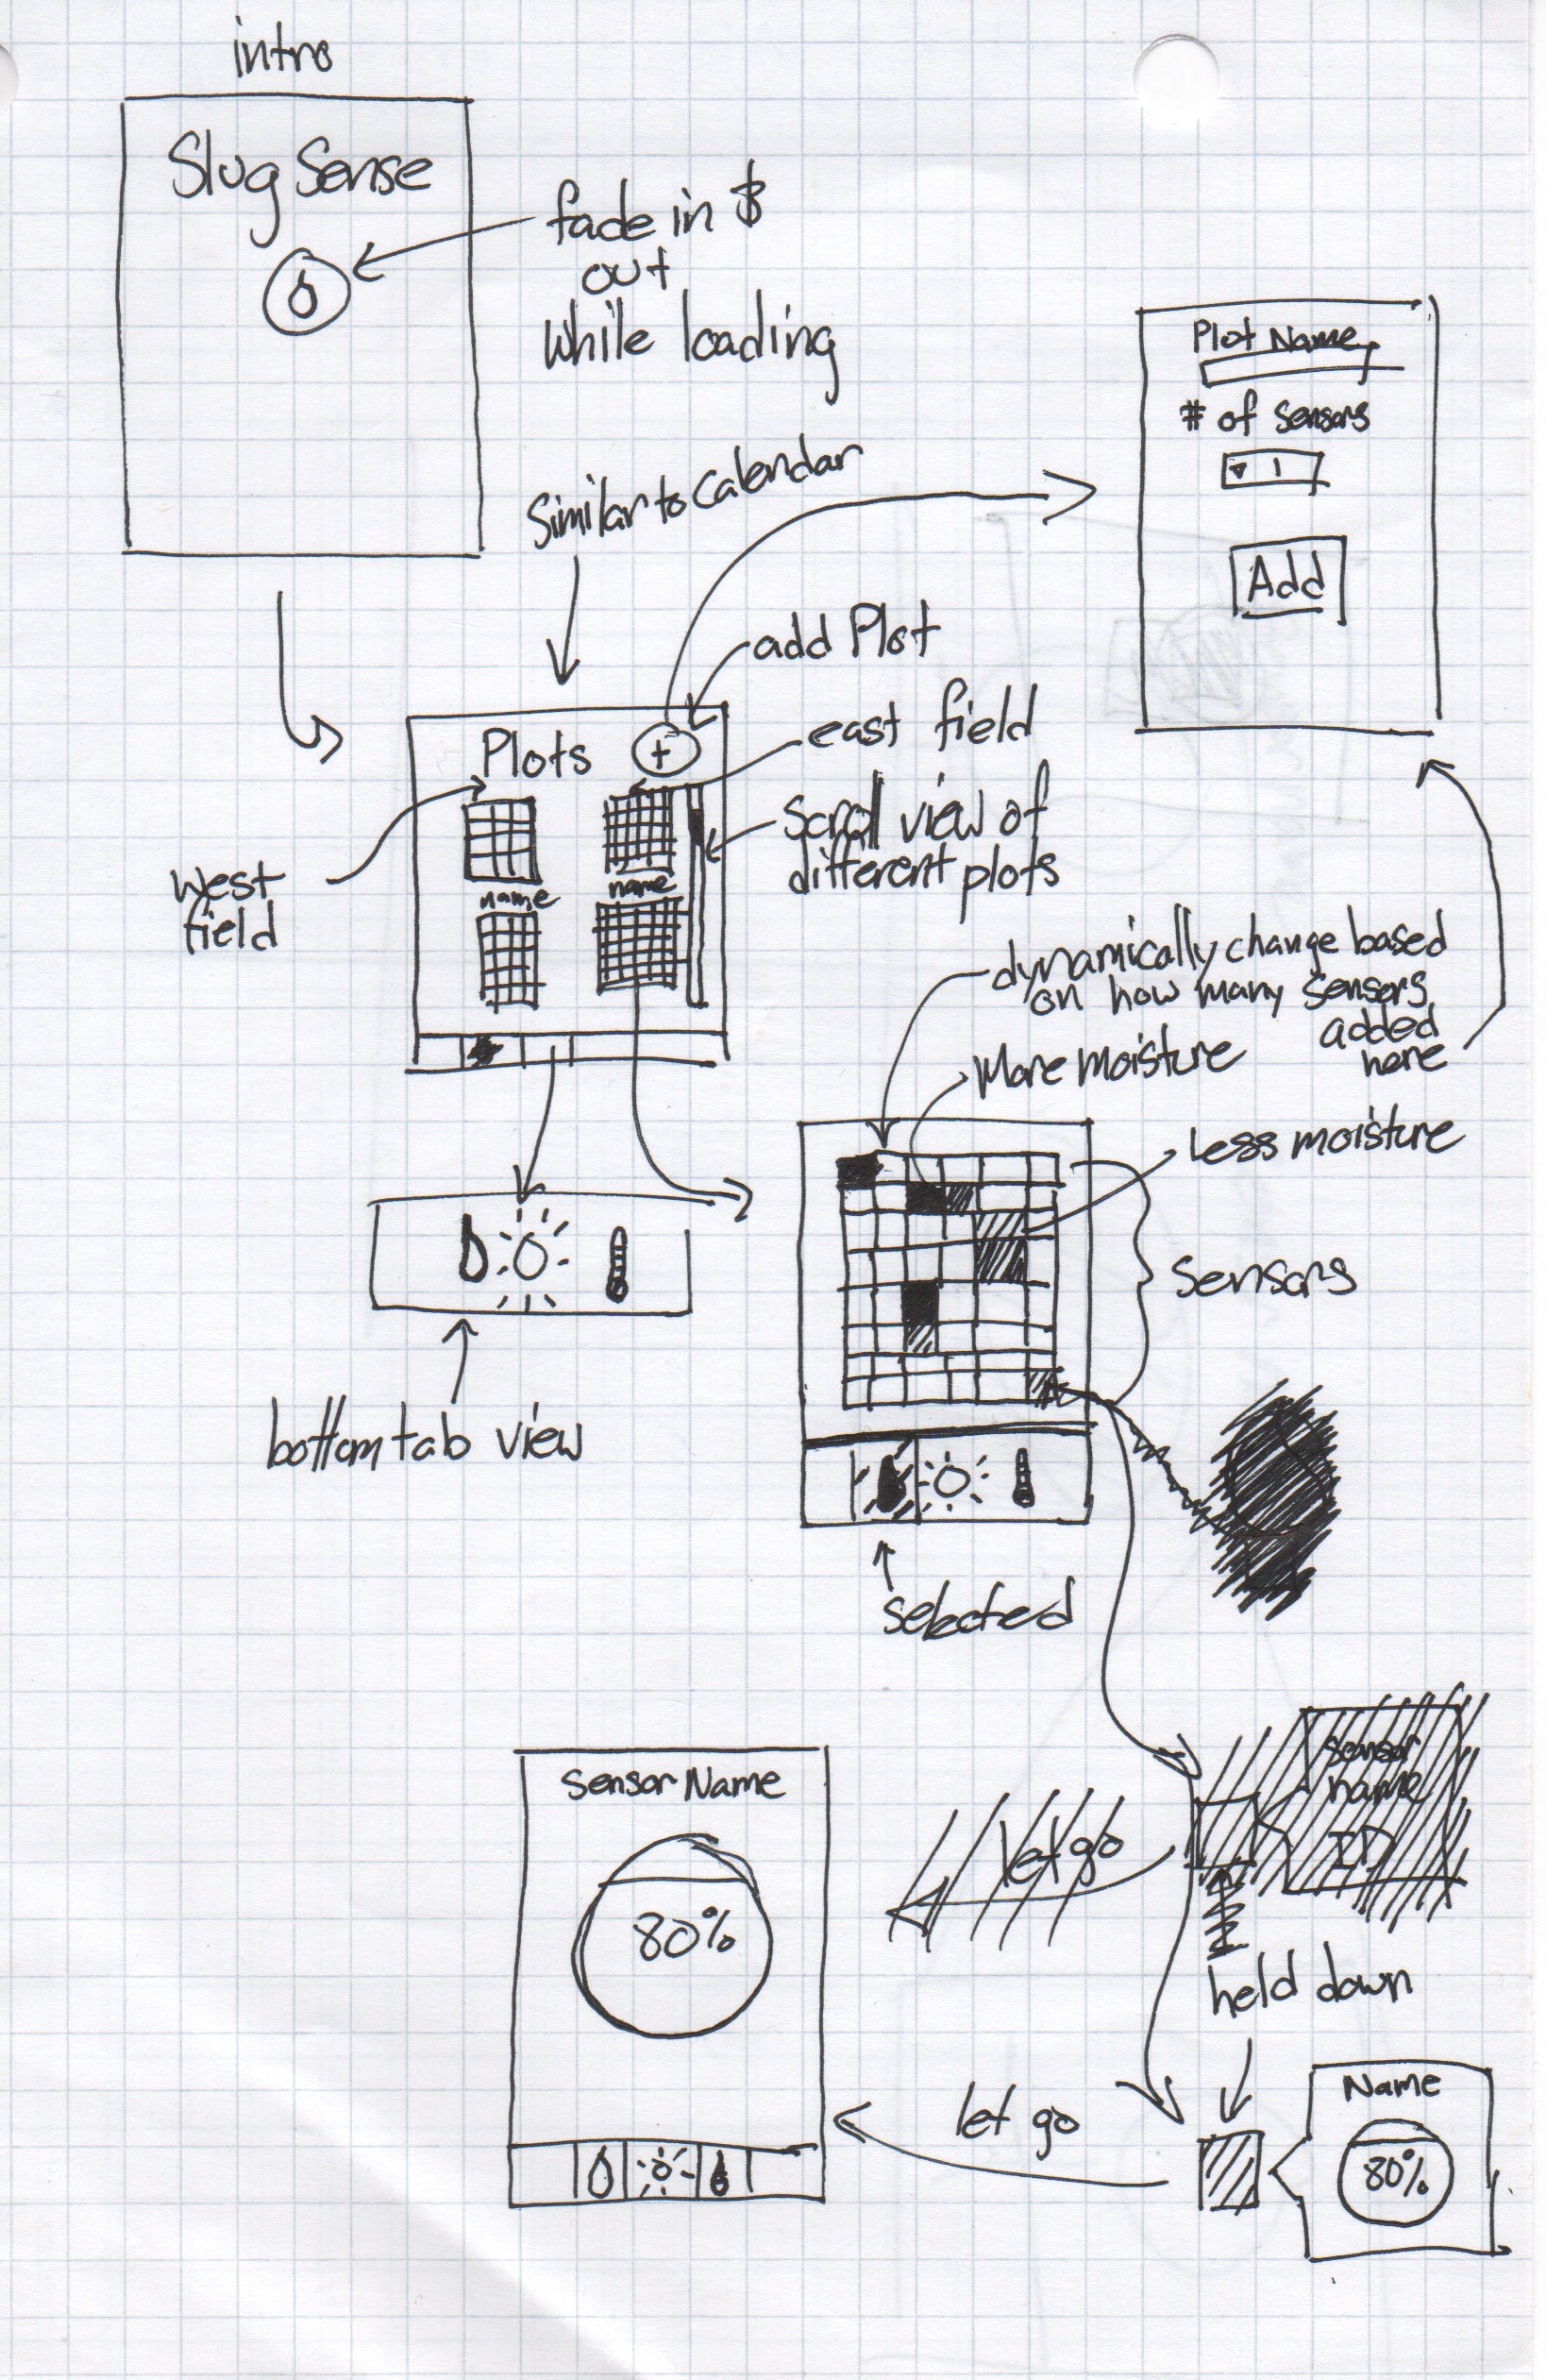 intro
Slug Sense
fade in &
out
while loading
Similar to Calendar
Plot Name
# of Sensors
1
Add
add Plot
Plots
+
east field
scroll view of
different plots
West
field
name
name
dynamically change based
on how many sensors
added
here
More moisture
Less moisture
Sensors
bottom tab view
selected
Sensor Name
80%
let go
sensor
name
ID
held down
let go
Name
80%